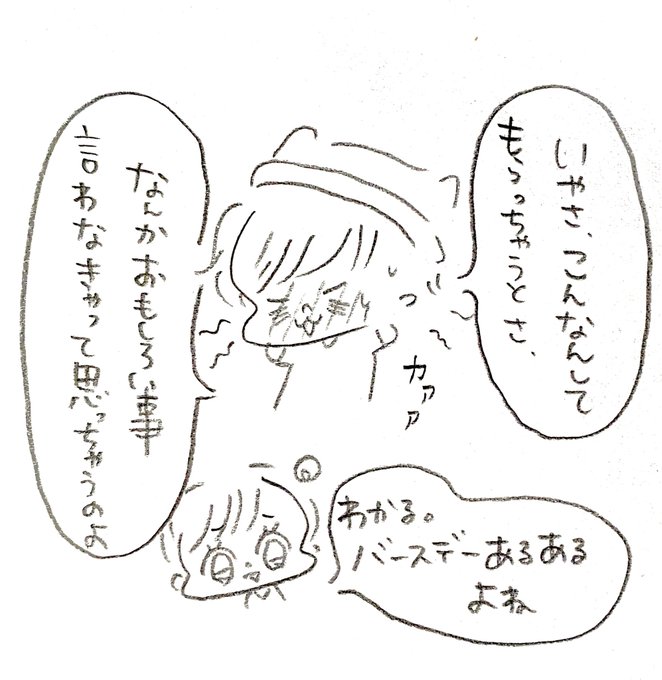 いやさ、こんなんして
もらっちゃうとさ、
なんかおもしろい事
言わなきゃって思っちゃうのよ
カァァ
わかる。
バースデーあるある
よね